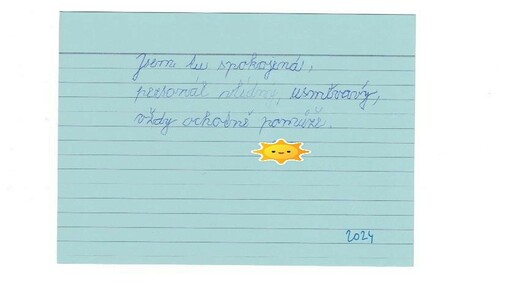 Jsem tu spokojená,
personál vlídný, usměvavý,
vždy ochotně pomůže.
2024